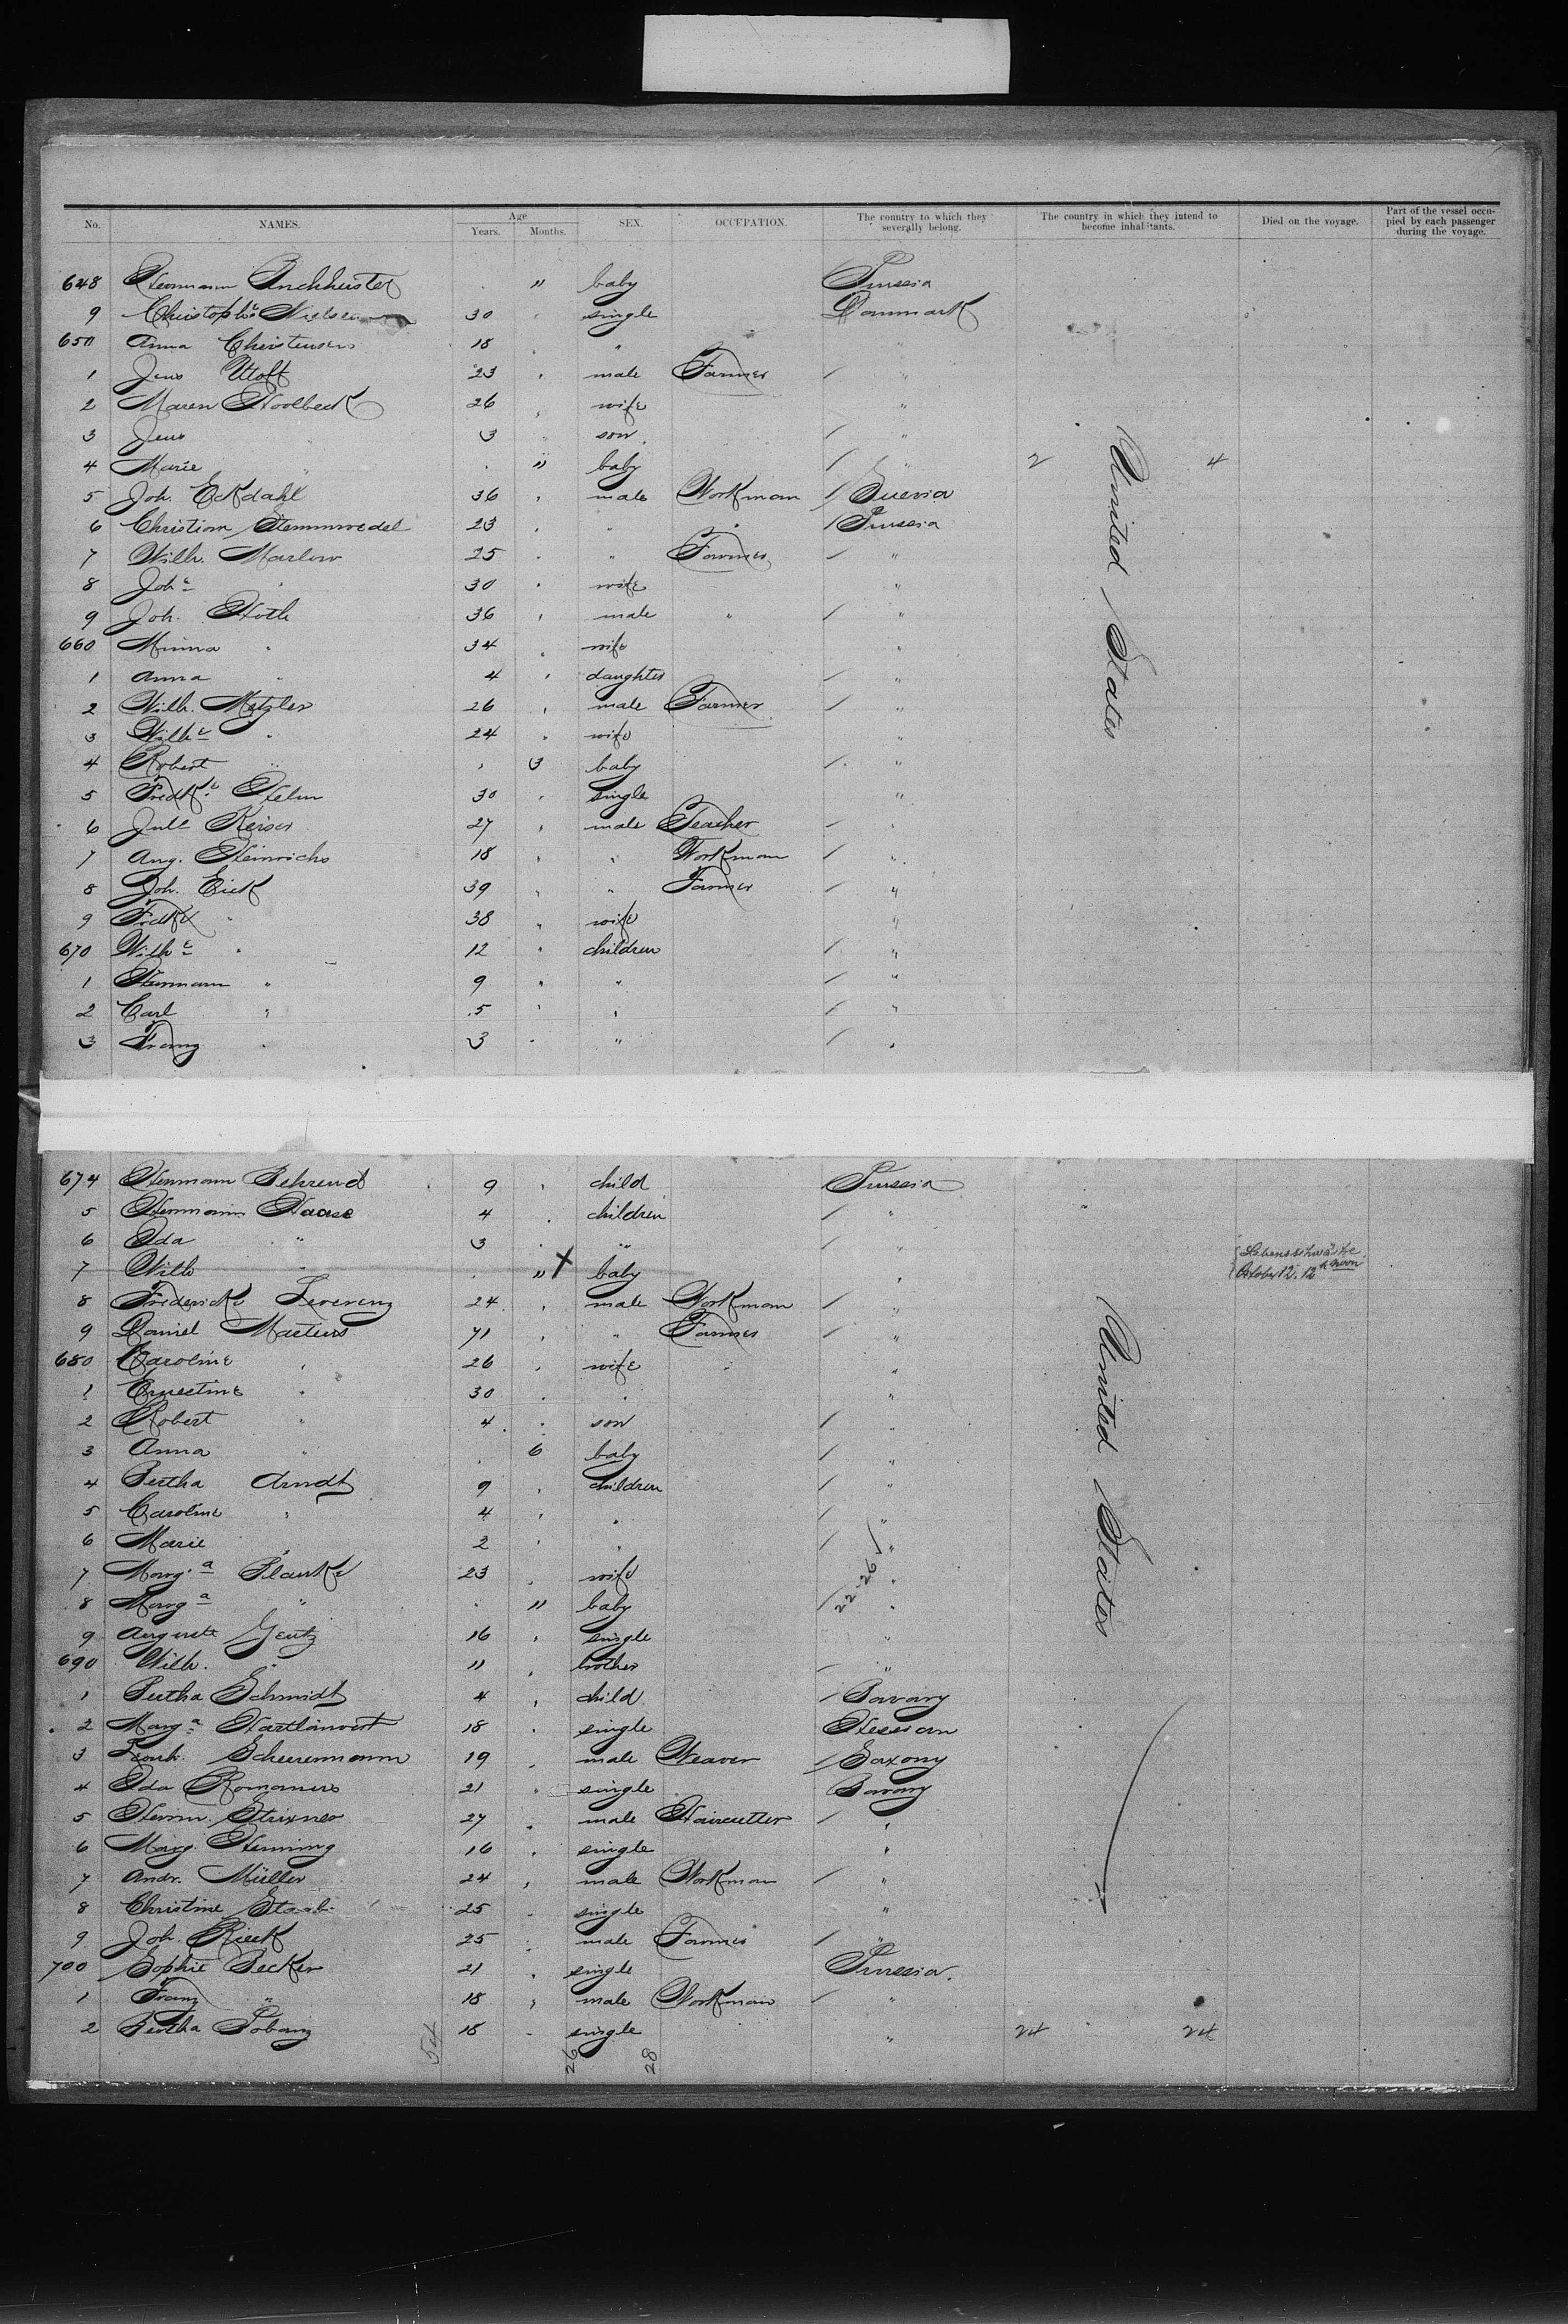 No. NAMES. Age Years. Months. SEX. OCCUPATION. The country to which they severally belong. The country in which they intend to become inhabitants. Died on the voyage. Part of the vessel occupied by each passenger during the voyage.
648 Hermann " baby Prussia
9 Christophe Nielsen 30 single Danmark
650 Anna Christensen 18 "
1 Jens 23 male Farmer "
2 Maren Hoolbeck 26 wife "
3 Jens 3 son "
4 Marie " baby " 2 4
5 Joh. Eckdahl 36 male Workman Suevia
6 Christian 23 " Prussia
7 Wilh. Marlow 25 " Farmer "
8 Johe " 30 wife "
9 Joh. Hoth 36 male " "
660 Minna " 34 wife "
1 Anna " 4 daughter "
2 Wilh. Metzler 26 male Farmer "
3 Wilhe " 24 wife "
4 Robert " 3 baby "
5 Fredke Helm 30 single "
6 Juls Keiser 27 male Teacher "
7 Aug. Heinrichs 18 " Workman "
8 Joh. Eick 39 " Farmer "
9 Fredke " 38 wife "
670 Wilhe " 12 children "
1 Hermann " 9 " "
2 Carl " 5 " "
3 Franz " 3 " "
United States
674 Hermann Behrend 9 child Prussia
5 Hermann Haase 4 children "
6 Ida " 3 " "
7 Wilh " " X baby " Lebensschwäche October 12. 12h noon
8 Fredericke Leverenz 24 male Workman "
9 Daniel Martens 71 " Farmer "
680 Caroline " 26 wife "
1 Ernestine " 30 " "
2 Robert " 4 son "
3 Anna " 6 baby "
4 Bertha Arndt 9 children "
5 Caroline " 4 " "
6 Marie " 2 " "
7 Marg.a Blanke 23 wife "
8 Marga " " baby 22-26 "
9 Auguste Gentz 16 single "
690 Wilh. " 11 brother "
1 Bertha Schmidt 4 child Bavary
2 Marga 18 single Hessian
3 Leonh. Scheuremann 19 male Weaver Saxony
4 Ida Romanus 21 single Bavary
5 Herm. Strixner 27 male Haircutter "
6 Marg. Henning 16 single "
7 Andr. Müller 24 male Workman "
8 Christine Staab 25 single "
9 Joh. Rieck 25 male Farmer "
700 Sophie Becker 21 single Prussia.
1 Franz " 18 male Workman "
2 Bertha 18 single " 24 24
United States
54 26 28